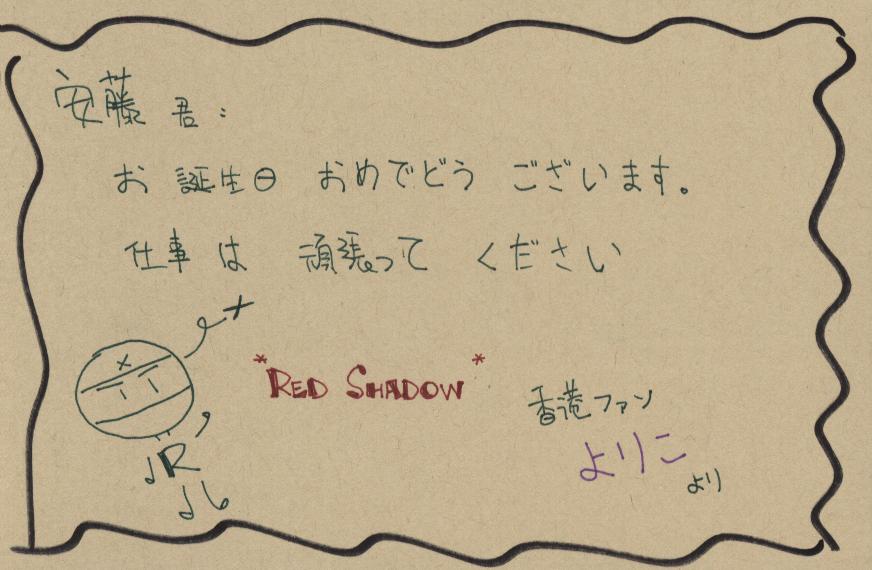 安藤 君:
お 誕生日 おめでどう ございます。
仕事 は 頑張って ください
*RED SHADOW*
香港ファン
よりこ
より
R